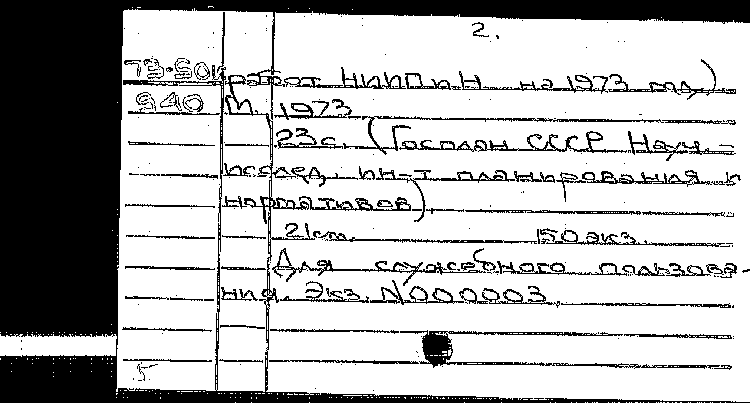 2.
73-50к работ НИИПиН на 1973 год).
940 М., 1973
23с. (Госплан СССР Науч.-
исслед. ин-т планирования и
нормативов).
21см. 150экз.
Для служебного пользова-
ния. Экз. N000003.
5